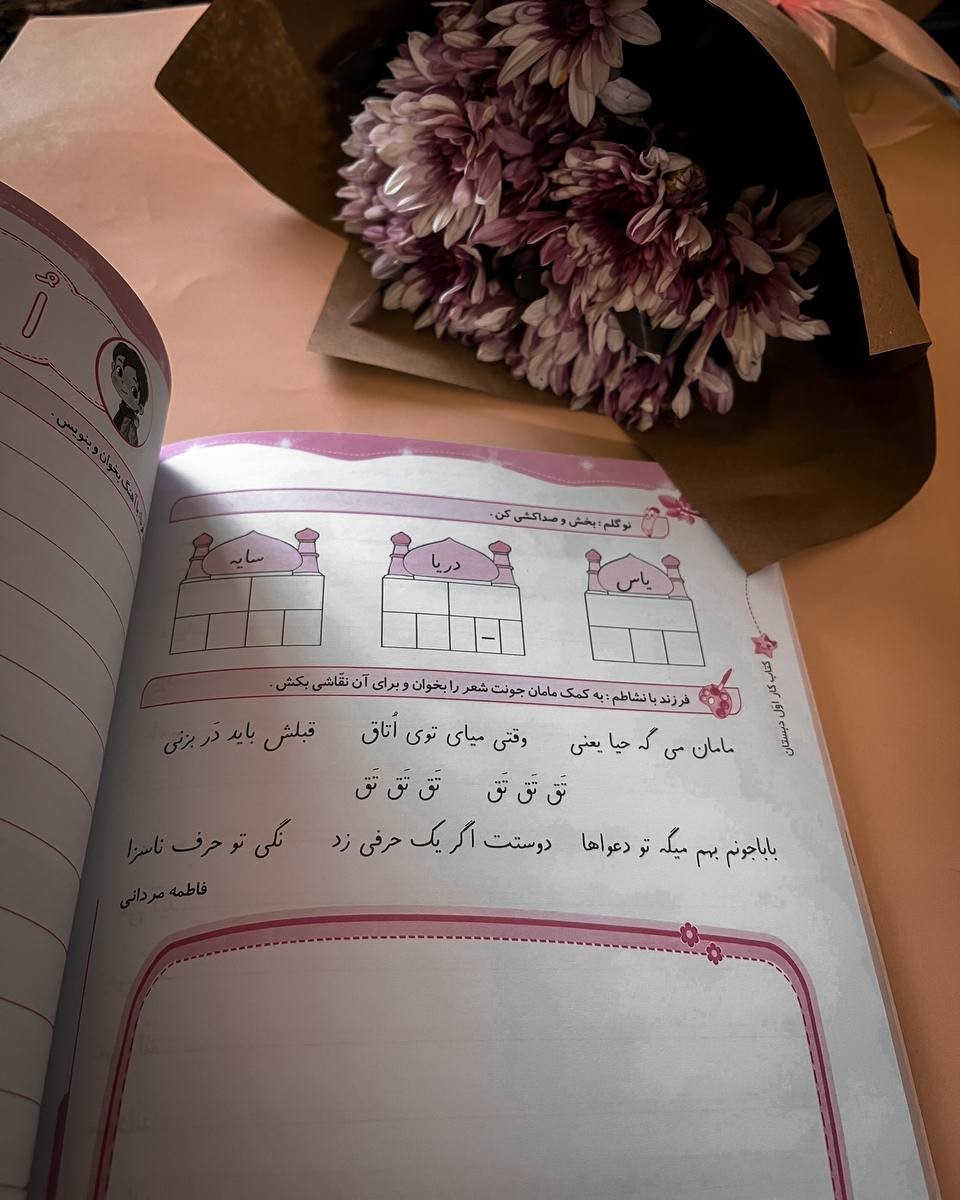 اُ
با آهنگ بخوان و بنویس .
نو گلم : بخش و صداکشی کن .
یاس دریا سایه
–
فرزند با نشاطم : به کمک مامان جونت شعر را بخوان و برای آن نقّاشی بکش .
مامان می گه حیا یعنی وقتی میای توی اُتاق قبلش باید دَر بزنی
تَق تَق تَق تَق تَق تَق
باباجونم بهم میگه تو دعواها دوستت اگر یک حرفی زد نگی تو حرف ناسزا
فاطمه مردانی
کتاب کار اوّل دبستان